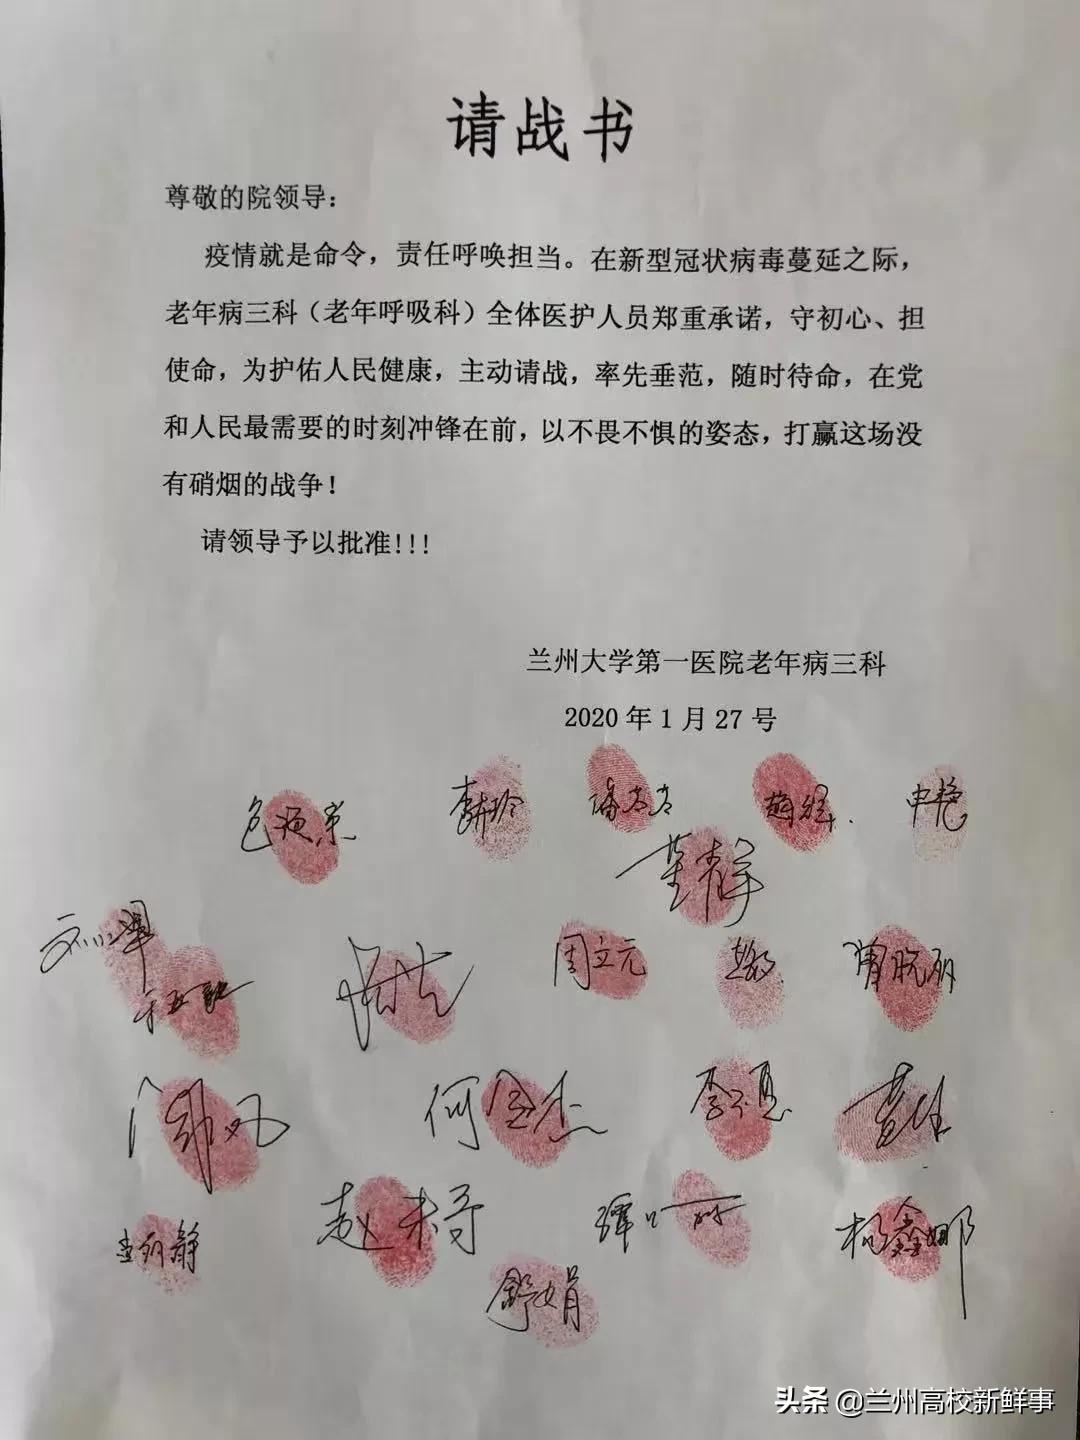 请战书
尊敬的院领导：
疫情就是命令，责任呼唤担当。在新型冠状病毒蔓延之际，
老年病三科（老年呼吸科）全体医护人员郑重承诺，守初心、担
使命，为护佑人民健康，主动请战，率先垂范，随时待命，在党
和人民最需要的时刻冲锋在前，以不畏不惧的姿态，打赢这场没
有硝烟的战争！
请领导予以批准!!!
兰州大学第一医院老年病三科
2020 年 1 月 27 号
申艳
董青
周立元
曾晓丽
何金杰
杨鑫娜
舒娟
头条 @兰州高校新鲜事